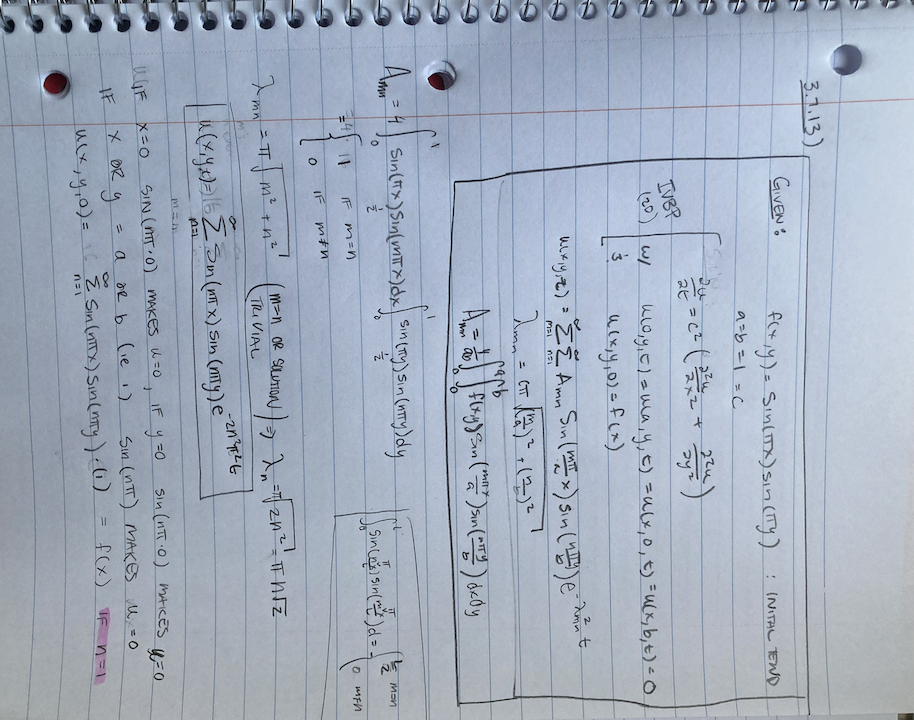 3.7.13)
GIVEN: f(x,y) = Sin(πx) sin(πy) : INITAL TEND
a=b=1=c
IVBP (2D) ∂u/∂t = c² (∂²u/∂x² + ∂²u/∂y²)
w/ u(0,y,t) = u(a,y,t) = u(x,0,t) = u(x,b,t) = 0
u(x,y,0) = f(x)
u(x,y,t) = ∞Σm=1 ∞Σn=1 Amn Sin(mπ/a x) sin(nπ/b y) e^-λ²mn t
λmn = cπ √(m/a)² + (n/b)²
Amn = 4/ab ∫₀ᵃ ∫₀ᵇ f(x,y) sin(mπx/a) sin(nπy/b) dxdy
Amn = 4 ∫₀¹ sin(πx) sin(mπx) dx ∫₀¹ sin(πy) sin(nπy) dy
1/2 1/2
= 4 { 1 IF m=n
0 IF m≠n
sin(nπ/L x) sin(mπ/L x) d = { L/2 m=n
0 m≠n
λmn = π √m² + n² (m=n OR SOLUTION TRIVIAL) => λn = π√2n² = πn√2
u(x,y,t) = ∞Σn=1 Sin(nπx) sin(nπy) e^-2n²π²t
IF x=0 SIN(nπ·0) MAKES u=0, IF y=0 sin(nπ·0) MAKES u=0
IF x OR y = a OR b (ie 1) sin(nπ) MAKES u=0
u(x,y,0) = ∞Σn=1 Sin(nπx) Sin(nπy)·(1) = f(x) IF n=1